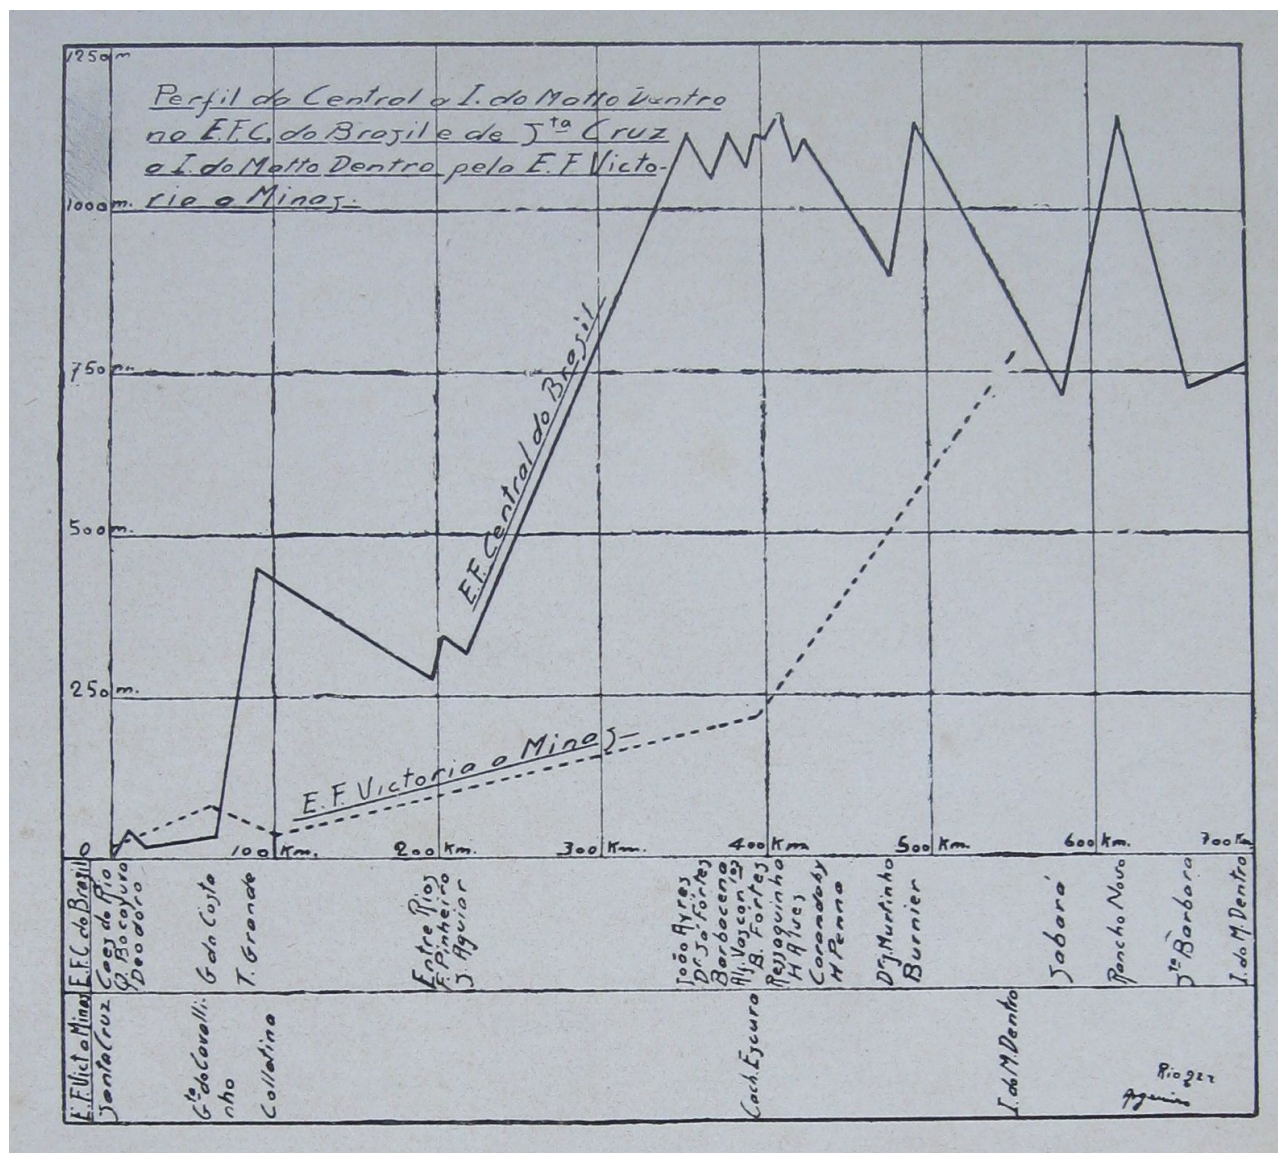 1250 m
Perfil da Central a I. do Matto Dentro
na E.F.C. do Brasil e de Sta Cruz
a I. do Matto Dentro pela E. F. Victo-
ria a Minas.
1000 m.
750 m.
500 m.
250 m.
0
E.F. Central do Brasil
E.F. Victoria a Minas
100 Km.
200 Km.
300 Km.
400 Km
500 Km.
600 Km.
700 Km
E.F.C. do Brasil
Caes do Rio
Q. Bocayuva
Deodoro
G da Costa
T. Grande
Entre Rios
F. Pinheiro
S. Aguiar
João Ayres
Dr. Sá Fortes
Barbacena
Alf. Vasconlos
B. Fortes
Ressaquinha
H Alves
Carandahy
H Penna
Dr. J. Murtinho
Burnier
Sabará
Rancho Novo
Sta Barbara
I. do M. Dentro
E.F. Vict a Minas
Santa Cruz
Gta do Cavalli-
nho
Collatina
Cach. Escura
I. do M. Dentro
Rio 922